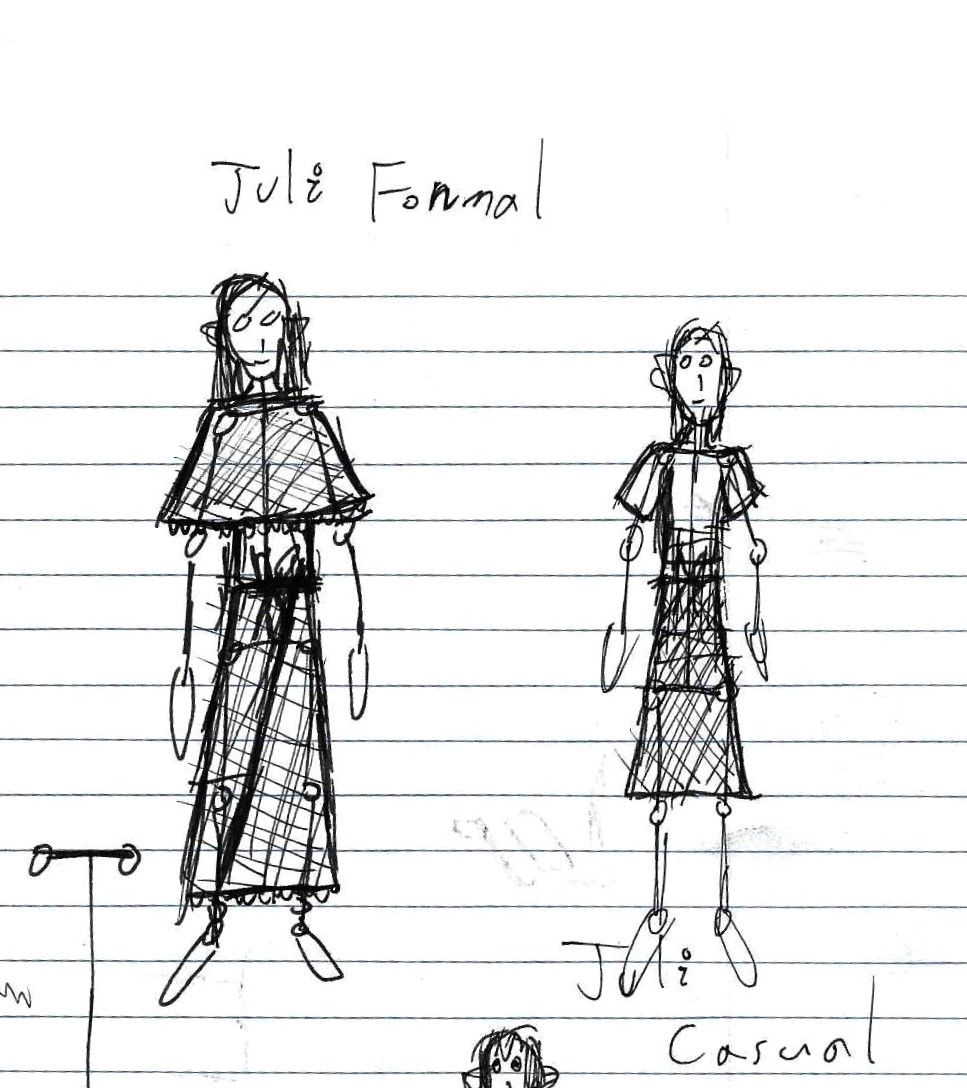 Juli Formal
Juli
Casual